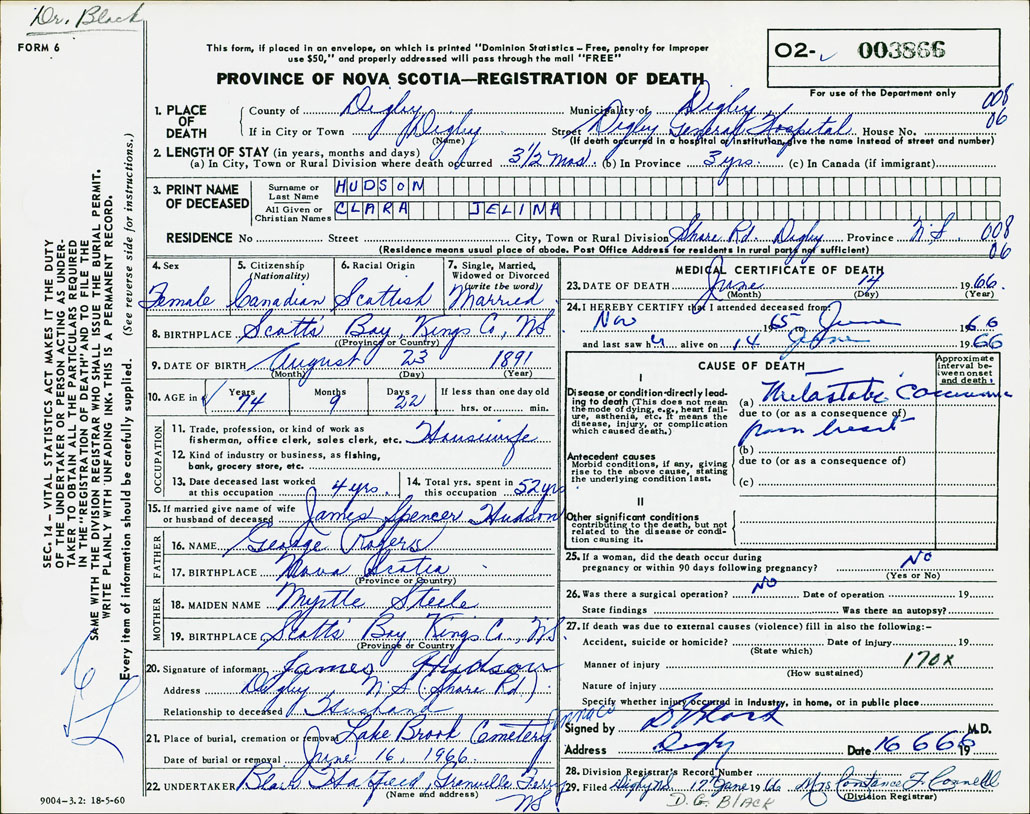 Dr. Black
FORM 6
This form, if placed in an envelope, on which is printed "Dominion Statistics – Free, penalty for improper
use $50," and properly addressed will pass through the mail "FREE"
PROVINCE OF NOVA SCOTIA—REGISTRATION OF DEATH
02- 003866
For use of the Department only
008
06
1. PLACE OF DEATH
County of Digby Municipality of Digby
If in City or Town Digby Street Digby General Hospital House No.
(Name) (If death occurred in a hospital or institution, give the name instead of street and number)
2. LENGTH OF STAY (in years, months and days)
(a) In City, Town or Rural Division where death occurred 3 1/2 mos. (b) in Province 3 yrs. (c) in Canada (if immigrant)
3. PRINT NAME OF DECEASED
Surname or Last Name HUDSON
All Given or Christian Names CLARA JELIMA
RESIDENCE No Street City, Town or Rural Division Shore Rd. Digby Province N.S. 008
06
(Residence means usual place of abode. Post Office Address for residents in rural parts not sufficient)
4. Sex
Female
5. Citizenship
(Nationality)
Canadian
6. Racial Origin
Scottish
7. Single, Married,
Widowed or Divorced
(write the word)
Married
8. BIRTHPLACE Scotts Bay, Kings Co., N.S.
(Province or Country)
9. DATE OF BIRTH August 23 1891
(Month) (Day) (Year)
10. AGE in Years 74 Months 9 Days 22 If less than one day old
hrs. or min.
OCCUPATION
11. Trade, profession, or kind of work as
fisherman, office clerk, sales clerk, etc. Housewife
12. Kind of industry or business, as fishing,
bank, grocery store, etc.
13. Date deceased last worked
at this occupation 4 yrs.
14. Total yrs. spent in
this occupation 52 yrs
15. If married give name of wife
or husband of deceased James Spencer Hudson
FATHER
16. NAME George Rogers
17. BIRTHPLACE Nova Scotia
(Province or Country)
MOTHER
18. MAIDEN NAME Myrtle Steele
19. BIRTHPLACE Scotts Bay Kings Co., N.S.
(Province or Country)
20. Signature of informant James Hudson
Address Digby N.S (Shore Rd.)
Relationship to deceased Husband
21. Place of burial, cremation or removal Lake Brook Cemetery
Date of burial or removal June 16, 1966
22. UNDERTAKER Blair Hatfield, Granville Ferry
(Name and address) N.S.
MEDICAL CERTIFICATE OF DEATH
23. DATE OF DEATH June 14 1966
(Month) (Day) (Year)
24. I HEREBY CERTIFY that I attended deceased from
Nov 1965 to June 1966
and last saw her alive on 14 June 1966
CAUSE OF DEATH
Approximate
interval be-
tween onset
and death
I
Disease or condition directly lead-
ing to death (This does not mean
the mode of dying, e.g., heart fail-
ure, asthenia, etc. It means the
disease, injury, or complication
which caused death.)
(a) Metastatic Carcinoma
due to (or as a consequence of)
from breast
Antecedent causes
Morbid conditions, if any, giving
rise to the above cause, stating
the underlying condition last.
(b)
due to (or as a consequence of)
(c)
II
Other significant conditions
contributing to the death, but not
related to the disease or condi-
tion causing it.
25. If a woman, did the death occur during
pregnancy or within 90 days following pregnancy? No
(Yes or No)
26. Was there a surgical operation? No Date of operation 19
State findings Was there an autopsy?
27. If death was due to external causes (violence) fill in also the following:-
Accident, suicide or homicide? Date of injury 19
(State which)
Manner of injury 170X
(How sustained)
Nature of injury
Specify whether injury occurred in industry, in home, or in public place
Signed by D G Black M.D.
Address Digby Date 16 6 66 19
28. Division Registrar's Record Number
29. Filed Digby N.S. 17 June 1966 Mrs Constance F. Connell
D. G. BLACK (Division Registrar)
SEC. 14 – VITAL STATISTICS ACT MAKES IT THE DUTY
OF THE UNDERTAKER OR PERSON ACTING AS UNDER-
TAKER TO OBTAIN ALL THE PARTICULARS REQUIRED
IN THE "REGISTRATION OF DEATH" AND TO FILE THE
SAME WITH THE DIVISION REGISTRAR WHO SHALL ISSUE THE BURIAL PERMIT.
WRITE PLAINLY WITH UNFADING INK. THIS IS A PERMANENT RECORD.
Every item of information should be carefully supplied. (See reverse side for instructions.)
9004-3.2: 18-5-60